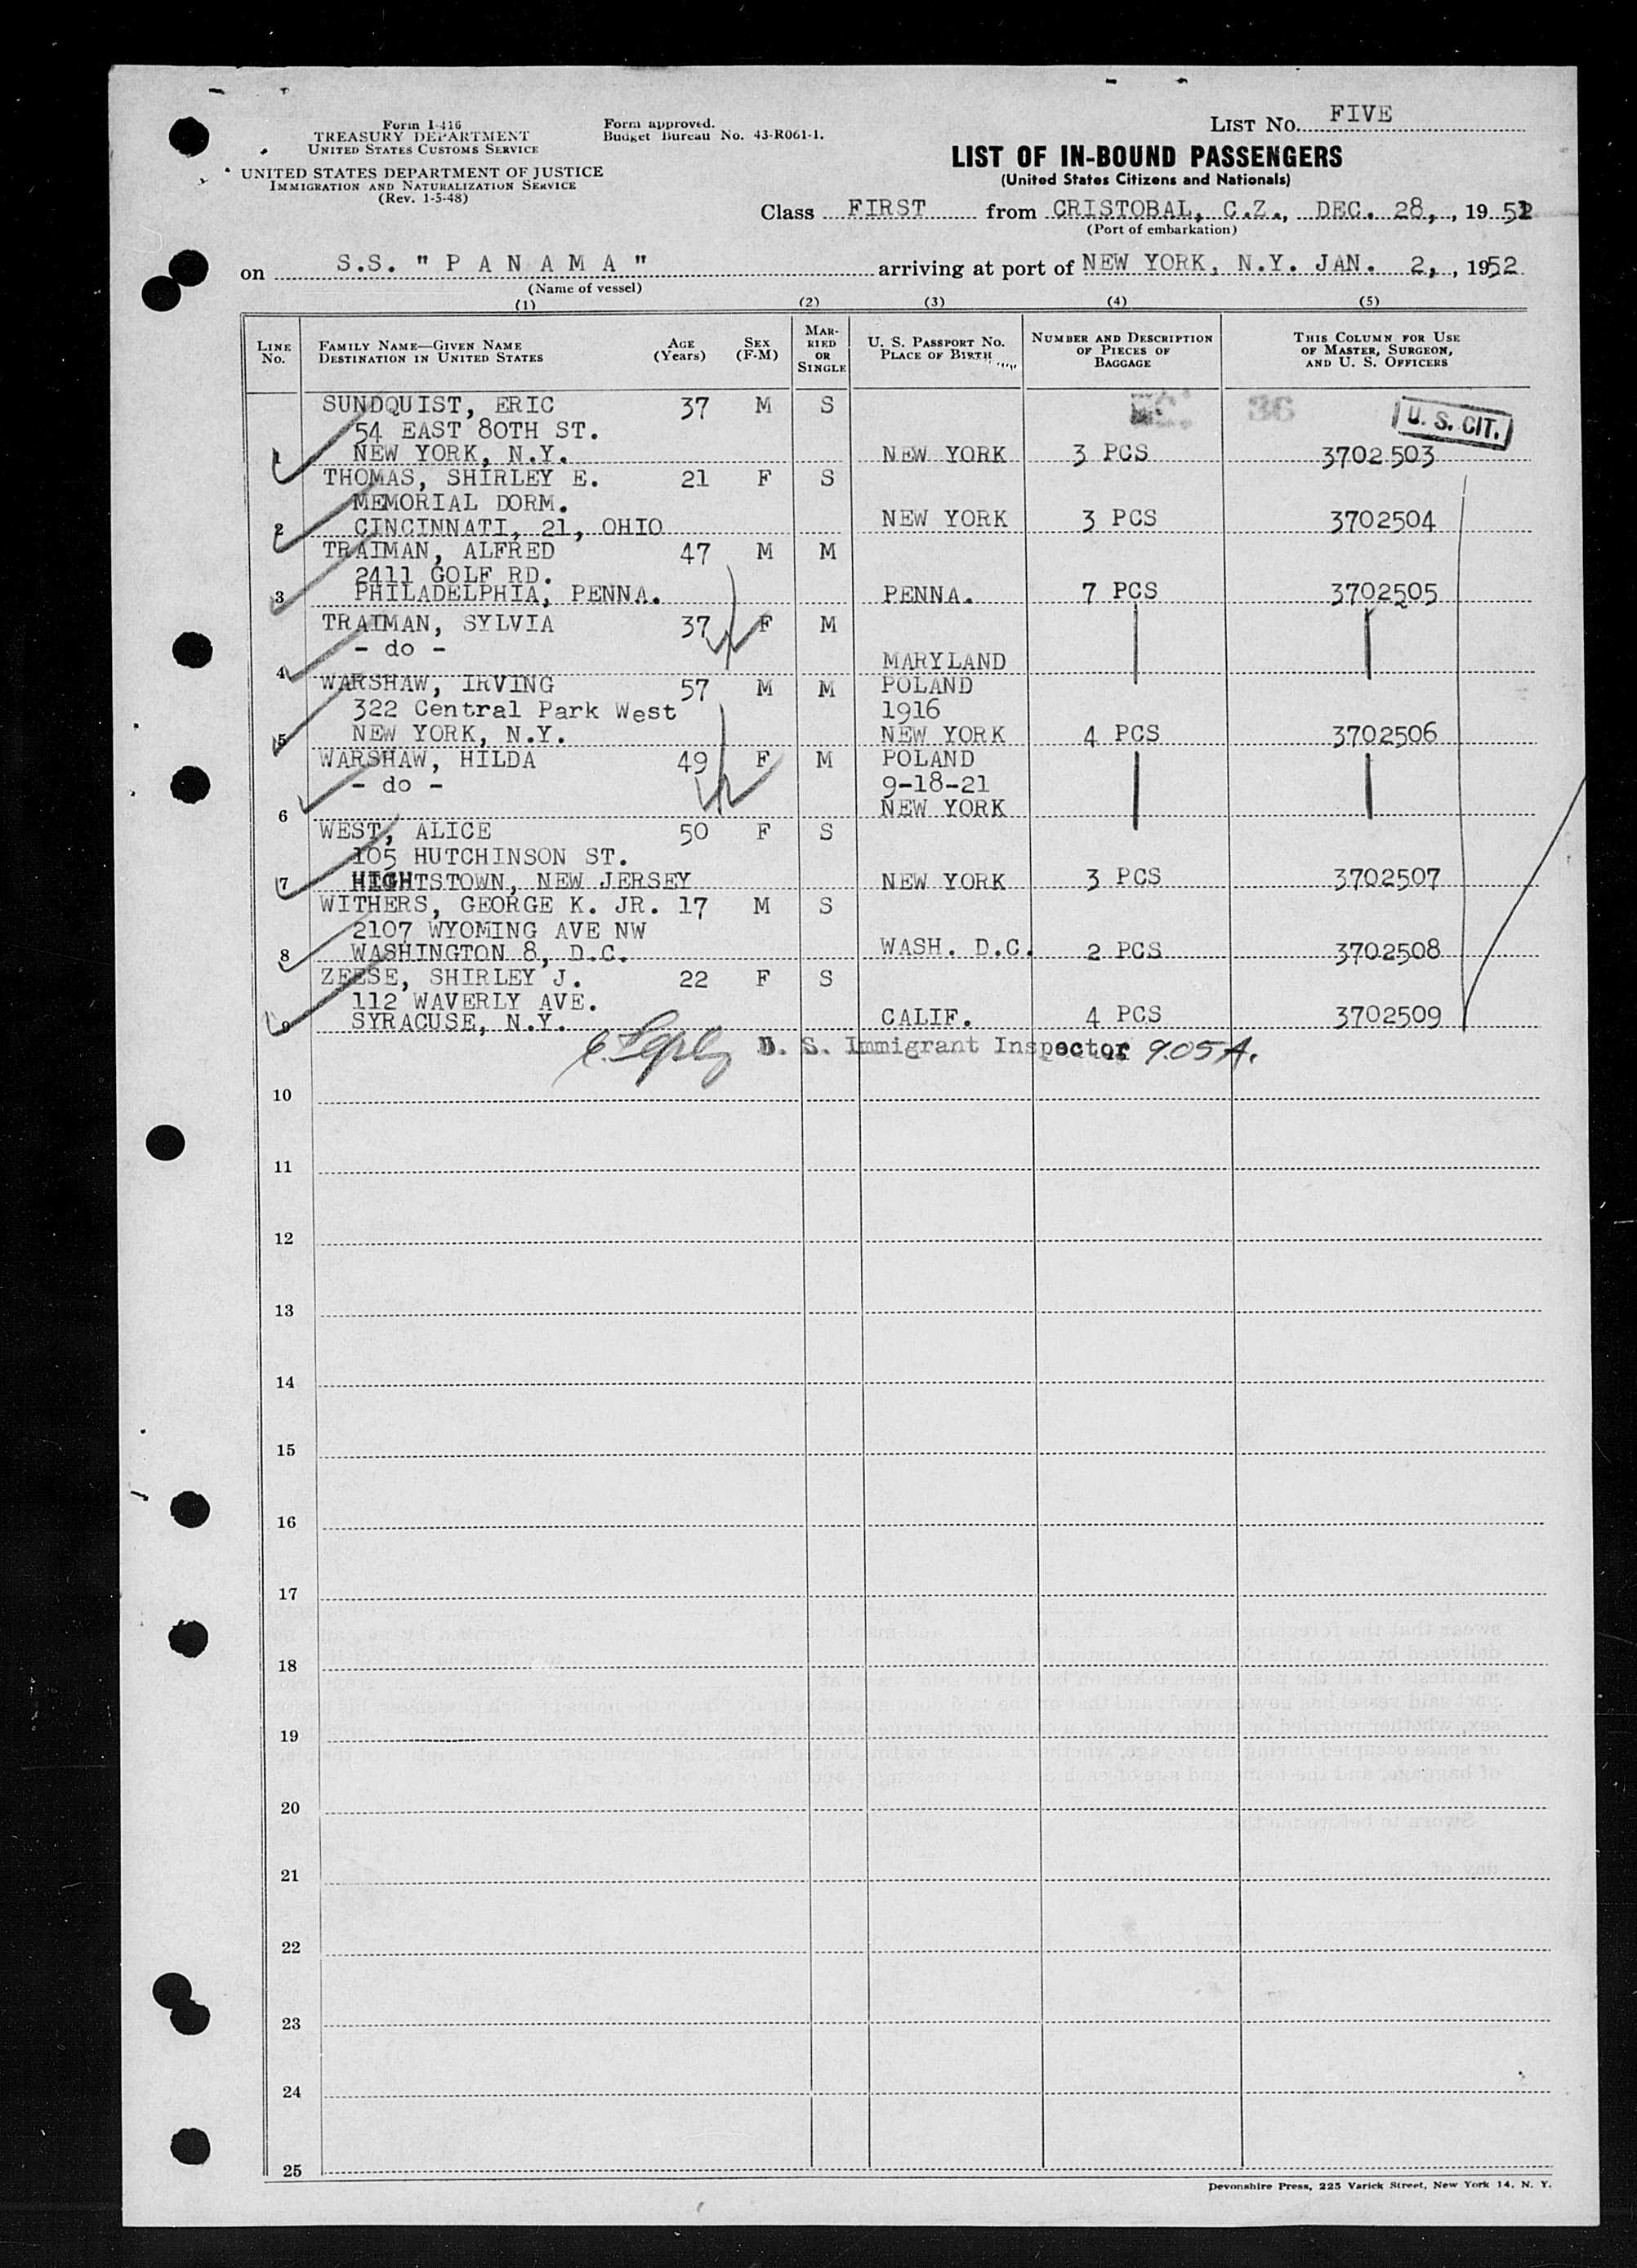 Form I-416
TREASURY DEPARTMENT
UNITED STATES CUSTOMS SERVICE
UNITED STATES DEPARTMENT OF JUSTICE
IMMIGRATION AND NATURALIZATION SERVICE
(Rev. 1-5-48)
Form approved.
Budget Bureau No. 43-R061-1.
LIST NO. FIVE
LIST OF IN-BOUND PASSENGERS
(United States Citizens and Nationals)
Class FIRST from CRISTOBAL, C.Z., DEC. 28, , 1951
(Port of embarkation)
on S.S. " P A N A M A " arriving at port of NEW YORK, N.Y. JAN. 2, , 1952
(Name of vessel)
(1) (2) (3) (4) (5)
LINE No. FAMILY NAME—GIVEN NAME DESTINATION IN UNITED STATES AGE (Years) SEX (F-M) MARRIED OR SINGLE U. S. PASSPORT No. PLACE OF BIRTH NUMBER AND DESCRIPTION OF PIECES OF BAGGAGE THIS COLUMN FOR USE OF MASTER, SURGEON, AND U. S. OFFICERS
SUNDQUIST, ERIC 37 M S 36 U. S. CIT.
54 EAST 80TH ST.
1 NEW YORK, N.Y. NEW YORK 3 PCS 3702503
THOMAS, SHIRLEY E. 21 F S
MEMORIAL DORM.
2 CINCINNATI, 21, OHIO NEW YORK 3 PCS 3702504
TRAIMAN, ALFRED 47 M M
2411 GOLF RD.
3 PHILADELPHIA, PENNA. PENNA. 7 PCS 3702505
TRAIMAN, SYLVIA 37 F M
- do -
4 MARYLAND
WARSHAW, IRVING 57 M M POLAND
322 Central Park West 1916
5 NEW YORK, N.Y. NEW YORK 4 PCS 3702506
WARSHAW, HILDA 49 F M POLAND
- do - 9-18-21
6 NEW YORK
WEST, ALICE 50 F S
105 HUTCHINSON ST.
7 HIGHTSTOWN, NEW JERSEY NEW YORK 3 PCS 3702507
WITHERS, GEORGE K. JR. 17 M S
2107 WYOMING AVE NW
8 WASHINGTON 8, D.C. WASH. D.C. 2 PCS 3702508
ZEESE, SHIRLEY J. 22 F S
112 WAVERLY AVE.
9 SYRACUSE, N.Y. CALIF. 4 PCS 3702509
U. S. Immigrant Inspector 9.05 A.
10
11
12
13
14
15
16
17
18
19
20
21
22
23
24
25
Devonshire Press, 225 Varick Street, New York 14, N. Y.